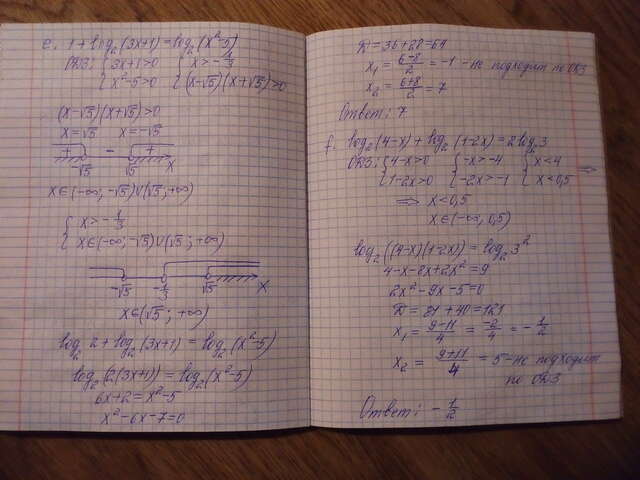 e. 1+log₂(3x+1)=log₂(x²-5)
ОДЗ: { 3x+1>0 { x>-1/3
x²-5>0 (x-√5)(x+√5)>0
(x-√5)(x+√5)>0
x=√5 x=-√5
+ - +
-√5 √5 x
x∈(-∞; -√5)∪(√5; +∞)
{ x>-1/3
x∈(-∞; -√5)∪(√5; +∞)
-√5 -1/3 √5 x
x∈(√5; +∞)
log₂ 2+log₂(3x+1)=log₂(x²-5)
log₂(2(3x+1))=log₂(x²-5)
6x+2=x²-5
x²-6x-7=0
D=36+28=64
x₁=(6-8)/2=-1 - не подходит по ОДЗ
x₂=(6+8)/2=7
Ответ: 7
f. log₂(4-x)+log₂(1-2x)=2log₂3
ОДЗ: { 4-x>0 { -x>-4 { x<4 ⇒
1-2x>0 -2x>-1 x<0,5
⇒ x<0,5
x∈(-∞, 0,5)
log₂((4-x)(1-2x))=log₂3²
4-x-8x+2x²=9
2x²-9x-5=0
D=81+40=121
x₁=(9-11)/4=-2/4=-1/2
x₂=(9+11)/4=5-не подходит
по ОДЗ
Ответ: -1/2